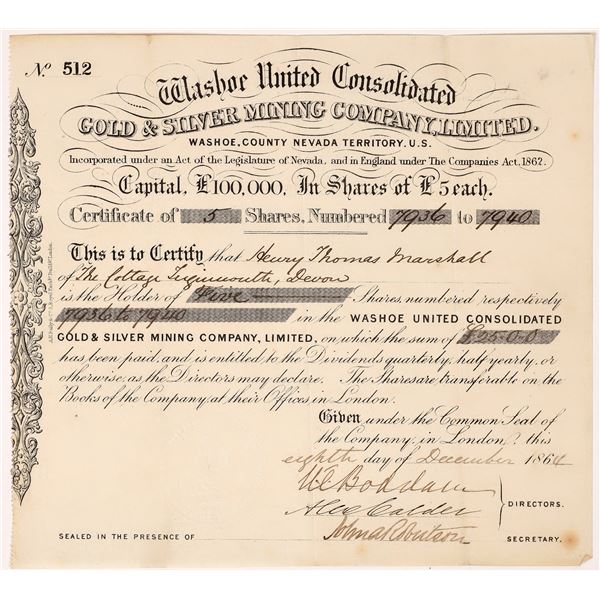 No. 512
Washoe United Consolidated
GOLD & SILVER MINING COMPANY, LIMITED.
WASHOE, COUNTY NEVADA TERRITORY. U.S.
Incorporated under an Act of the Legislature of Nevada, and in England under The Companies Act, 1862.
Capital, £100,000, In Shares of £5 each.
Certificate of 5 Shares, Numbered 7936 to 7940
This is to Certify that Henry Thomas Marshall
of The Cottage Teignmouth, Devon
is the Holder of Five Shares, numbered respectively
7936 to 7940 in the WASHOE UNITED CONSOLIDATED
GOLD & SILVER MINING COMPANY, LIMITED, on which the sum of £25-0-0
has been paid, and is entitled to the Dividends quarterly, half yearly, or
otherwise, as the Directors may declare. The Shares are transferable on the
Books of the Company, at their Offices in London.
Given under the Common Seal of
the Company, in London, this
eighth day of December 1864
Alex Calder
DIRECTORS.
SEALED IN THE PRESENCE OF
SECRETARY.